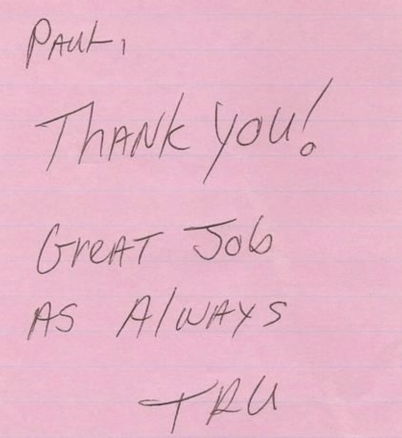 Paul,
Thank you!
Great Job
As Always
TRU